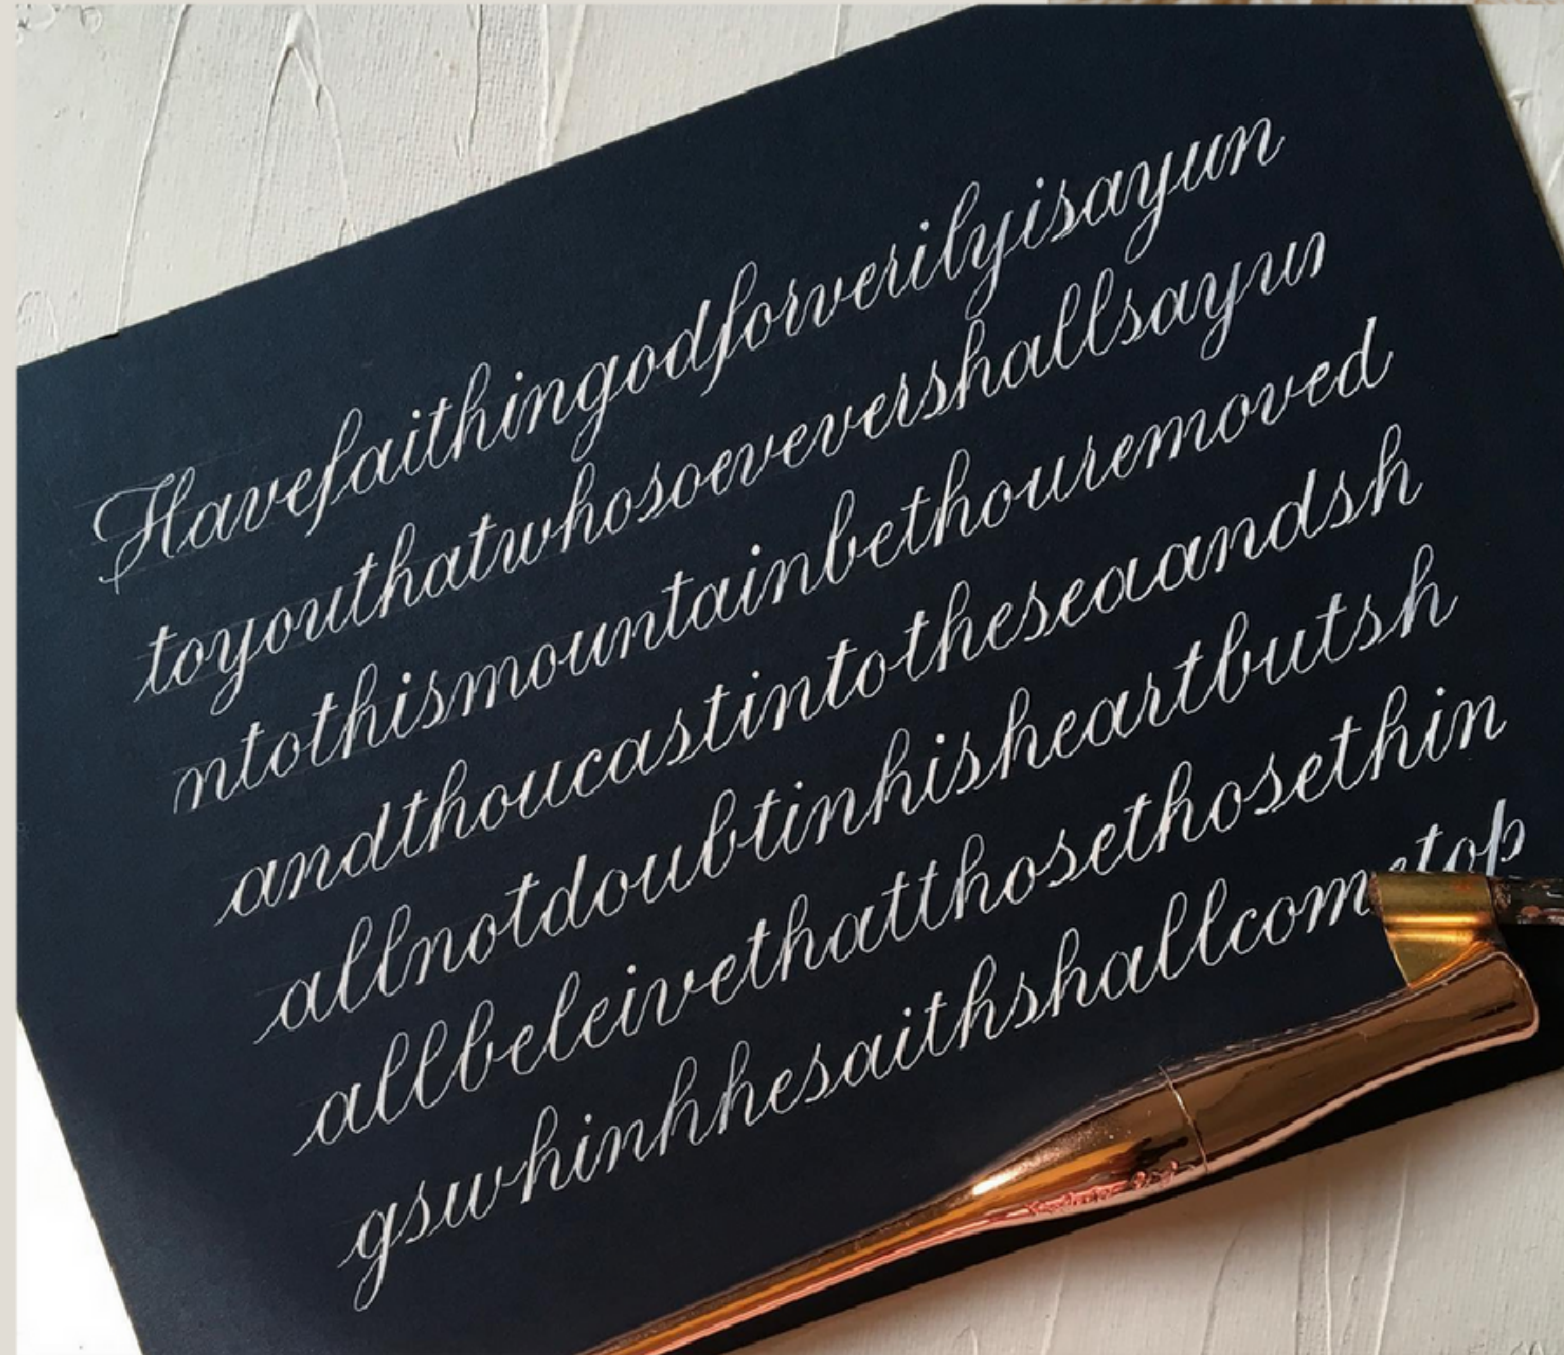 Havefaithingodforverilyisayun
toyouthatwhosoevershallsayun
ntothismountainbethouremoved
andthoucastintotheseaandsh
allnotdoubtinhisheartbutsh
allbeleivethatthosethosethin
gswhinhhesaithshallcometop